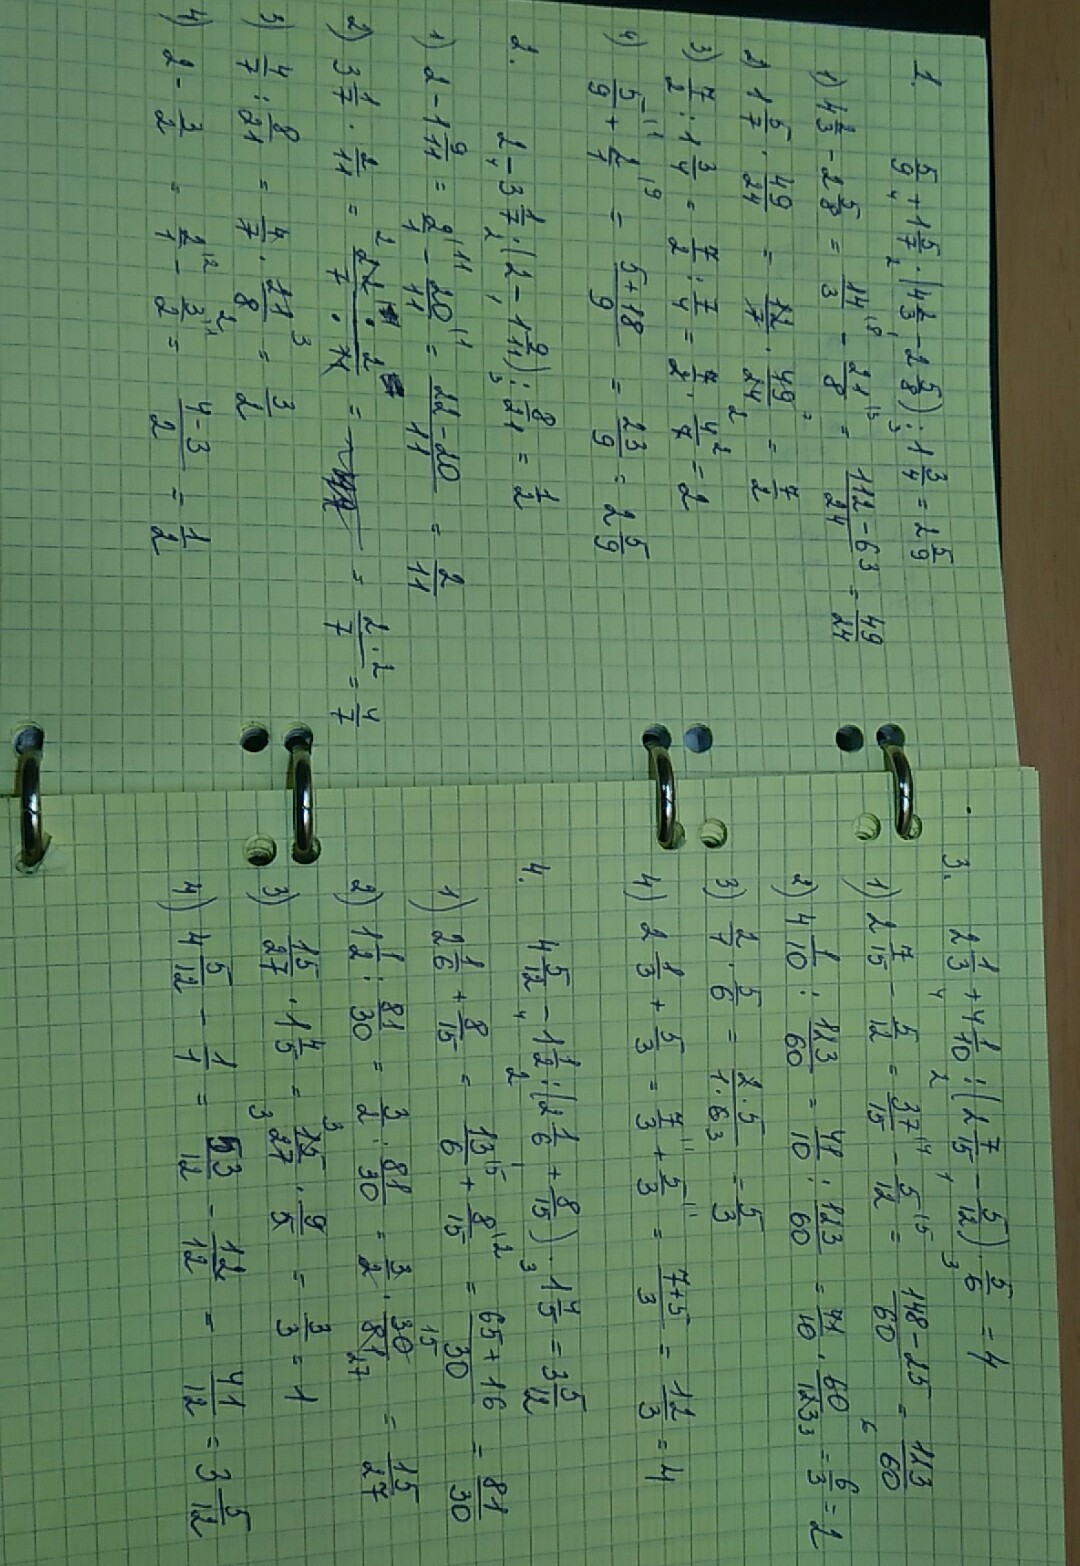 1.
5/9 + 1 5/7 · (4 2/3 - 2 5/8) : 1 3/4 = 2 5/9
1) 4 2/3 - 2 5/8 = 14/3 - 21/8 = 112-63/24 = 49/24
2) 1 5/7 · 49/24 = 12/7 · 49/24 = 7/2
3) 7/2 : 1 3/4 = 7/2 : 7/4 = 7/2 · 4/7 = 2
4) 5/9 + 2/1 = 5+18/9 = 23/9 = 2 5/9
2.
2 - 3 1/7 · (2 - 1 9/11) : 8/21 = 1/2
1) 2 - 1 9/11 = 2/1 - 20/11 = 22-20/11 = 2/11
2) 3 1/7 · 2/11 = 22 · 2/7 · 11 = = 2 · 2/7 = 4/7
3) 4/7 : 8/21 = 4/7 · 21/8 = 3/2
4) 2 - 3/2 = 2/1 - 3/2 = 4-3/2 = 1/2
3.
2 1/3 + 4 1/10 : (2 7/15 - 5/12) · 5/6 = 4
1) 2 7/15 - 5/12 = 37/15 - 5/12 = 148-25/60 = 123/60
2) 4 1/10 : 123/60 = 41/10 : 123/60 = 41/10 · 60/123 = 6/3 = 2
3) 2/1 · 5/6 = 2·5/1·6 = 5/3
4) 2 1/3 + 5/3 = 7/3 + 5/3 = 7+5/3 = 12/3 = 4
4.
4 5/12 - 1 1/2 : (2 1/6 + 8/15) · 1 4/5 = 3 5/12
1) 2 1/6 + 8/15 = 13/6 + 8/15 = 65+16/30 = 81/30
2) 1 1/2 : 81/30 = 3/2 : 81/30 = 3/2 · 30/81 = 15/27
3) 15/27 · 1 4/5 = 15/27 · 9/5 = 3/3 = 1
4) 4 5/12 - 1/1 = 53/12 - 12/12 = 41/12 = 3 5/12